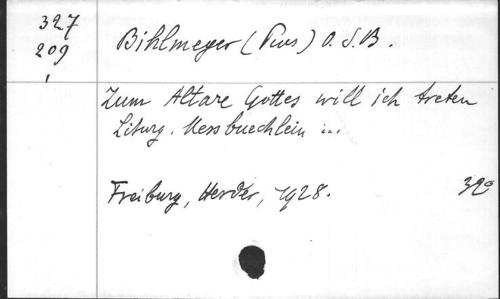 327
209
Bihlmeyer (Pius) O.S.B.
Zum Altare Gottes will ich treten
Liturg. Messbuechlein ...
Freiburg, Herder, 1928.
390